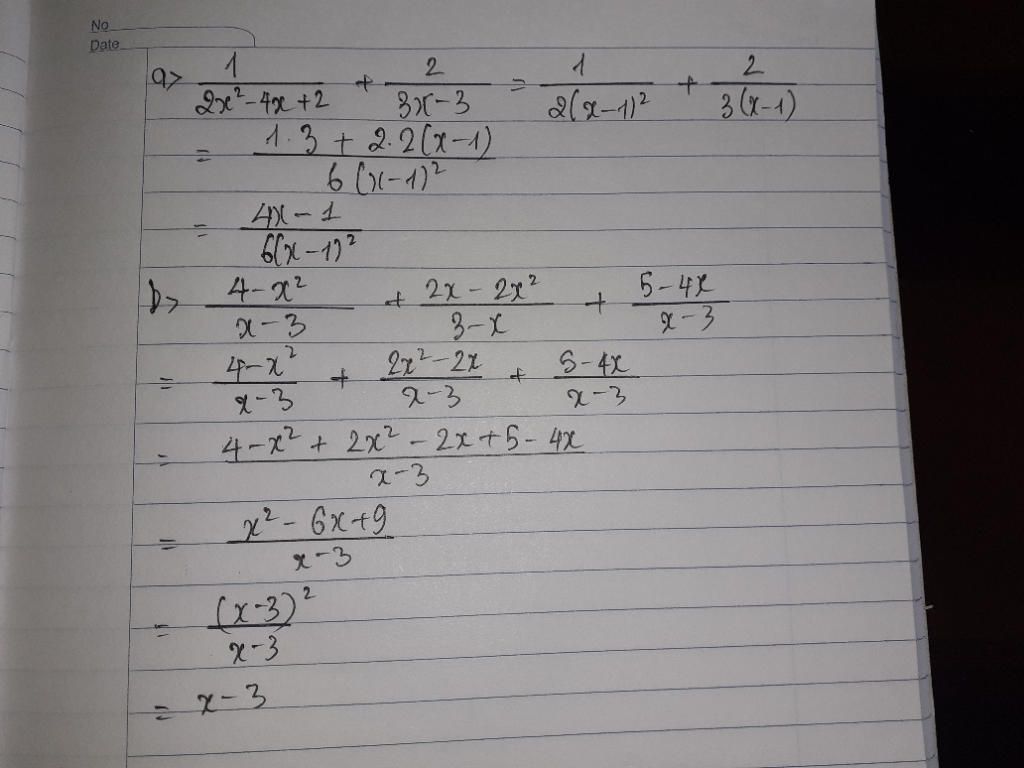 No
Date
a> 1/(2x²-4x+2) + 2/(3x-3) = 1/(2(x-1)²) + 2/(3(x-1))
= (1.3 + 2.2(x-1))/(6(x-1)²)
= (4x-1)/(6(x-1)²)
b> (4-x²)/(x-3) + (2x-2x²)/(3-x) + (5-4x)/(x-3)
= (4-x²)/(x-3) + (2x²-2x)/(x-3) + (5-4x)/(x-3)
= (4-x²+2x²-2x+5-4x)/(x-3)
= (x²-6x+9)/(x-3)
= (x-3)²/(x-3)
= x-3